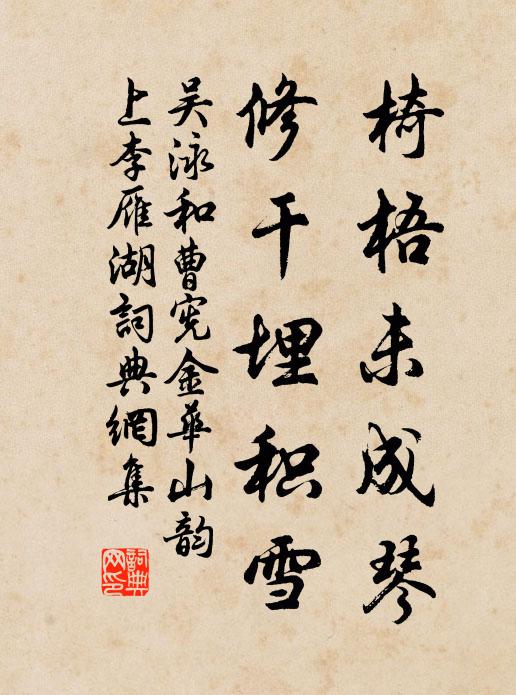 椅梧未成琴
修干埋积雪
吴泳和曹宪金华山韵
上李雁湖詞典網集
詞典
网印